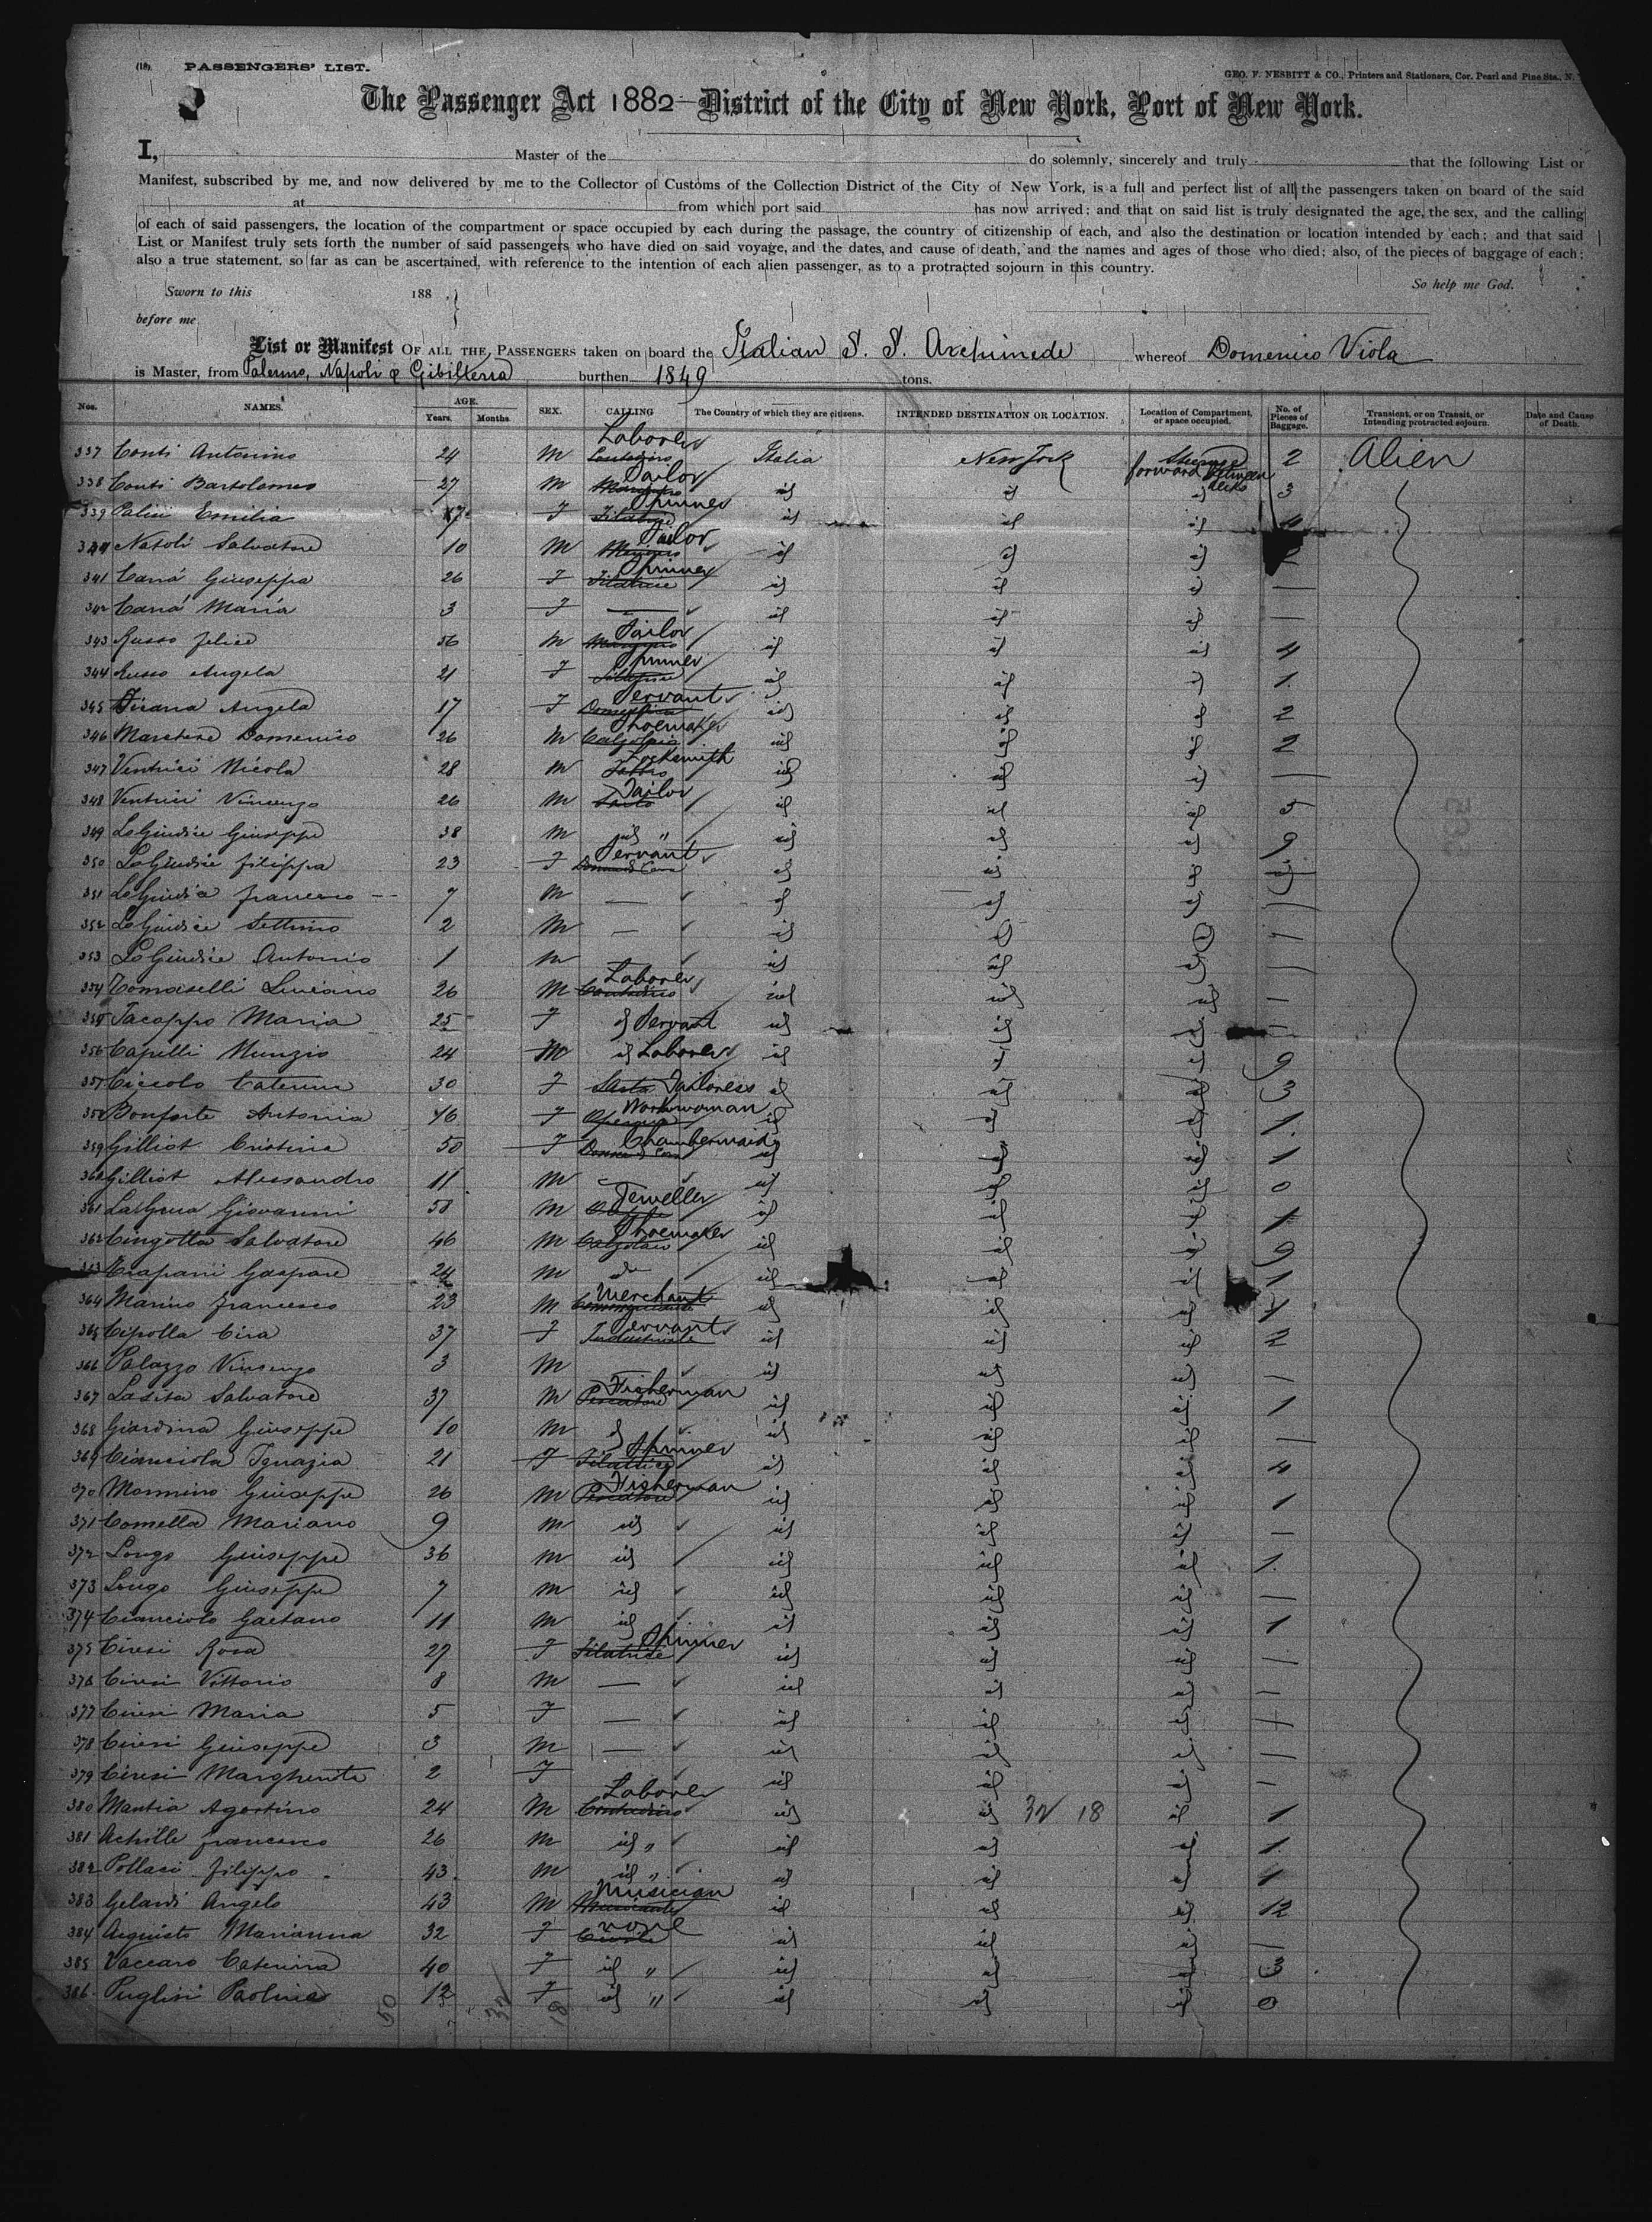 (18). PASSENGERS' LIST.
GEO. F. NESBITT & CO., Printers and Stationers, Cor. Pearl and Pine Sts., N.
The Passenger Act 1882 District of the City of New York, Port of New York.
I, Master of the do solemnly, sincerely and truly that the following List or
Manifest, subscribed by me, and now delivered by me to the Collector of Customs of the Collection District of the City of New York, is a full and perfect list of all the passengers taken on board of the said
at from which port said has now arrived; and that on said list is truly designated the age, the sex, and the calling
of each of said passengers, the location of the compartment or space occupied by each during the passage, the country of citizenship of each, and also the destination or location intended by each; and that said
List or Manifest truly sets forth the number of said passengers who have died on said voyage, and the dates, and cause of death, and the names and ages of those who died; also, of the pieces of baggage of each;
also a true statement, so far as can be ascertained, with reference to the intention of each alien passenger, as to a protracted sojourn in this country.
Sworn to this 188 So help me God.
before me
List or Manifest OF ALL THE PASSENGERS taken on board the Italian S. S. Archimede whereof Domenico Viola
is Master, from Palermo, Napoli & Gibilterra burthen 1849 tons.
Nos. NAMES. AGE. Years. Months. SEX. CALLING The Country of which they are citizens. INTENDED DESTINATION OR LOCATION. Location of Compartment, or space occupied. No. of Pieces of Baggage. Transient, or on Transit, or Intending protracted sojourn. Date and Cause of Death.
337 Conti Antonino 24 M Laborer Italia New York Steerage forward between decks 2 Alien
338 Conti Bartolomeo 27 M Tailor id id id 3
339 Emilia F Spinner id id id
340 Natoli Salvatore 10 M Tailor id id id
341 Caná Giuseppa 26 F Spinner id id id —
342 Caná Maria 3 F — id id id —
343 Russo Felice 56 M Tailor id id id 4
344 Russo Angela 21 F Spinner id id id 1
345 Angela 17 F Servant id id id 2
346 Domenico 26 M Shoemaker Calzolaio id id id 2
347 Ventrici Nicola 28 M Locksmith id id id —
348 Ventrici Vincenzo 26 M Tailor Sarto id id id 5
349 LoGiudice Giuseppe 38 M id " id id id 9
350 LoGiudice Filippa 23 F Servant id id id
351 LoGiudice Francesco 7 M — id id id —
352 LoGiudice Settimo 2 M — id id id
353 LoGiudice Antonio 1 M — id id id
354 Tomaselli Luciano 26 M Laborer Contadino id id id —
355 Jacoppo Maria 25 F id Servant id id id —
356 Capelli Nunzio 24 M id Laborer id id id 9
357 Ciccolo Caterina 30 F Sarta Tailoress id id id 3
358 Bonforte Antonia 46 F Workwoman Operaia id id id 1.
359 Gilliot Cristina 50 F Chambermaid id id id 1
360 Gilliot Alessandro 11 M — id id id 0
361 Giovanni 58 M Jeweller id id id 1
362 Cingotta Salvatore 46 M Shoemaker Calzolaio id id id 9
363 Trapani Gaspare 24 M id id id 1
364 Marino Francesco 23 M Merchant Commerciante id id id 1
365 Cipolla Cira 37 F Servant Industriale id id id 2
366 Palazzo Vincenzo 3 M id id id —
367 Salvatore 37 M Fisherman Pescatore id id id 1
368 Giardina Giuseppe 10 M id id id id —
369 Cianciola Ignazia 21 F Spinner Filatrice id id id 4
370 Mannino Giuseppe 26 M Fisherman Pescatore id id id 1
371 Comella Mariano 9 M id id id id —
372 Longo Giuseppe 36 M id id id id 1.
373 Longo Giuseppe 7 M id id id id —
374 Cianciolo Gaetano 11 M id id id id 1
375 Ciresi Rosa 27 F Spinner Filatrice id id id —
376 Ciresi Vittorio 8 M — id id id —
377 Ciresi Maria 5 F — id id id —
378 Ciresi Giuseppe 3 M — id id id —
379 Ciresi Margherita 2 F id id id —
380 Mantia Agostino 24 M Laborer Contadino id id 32 18 id 1
381 Achille Francesco 26 M id " id id id 1.
382 Pollaci Filippo 43. M id " id id id 1
383 Gelardi Angelo 43 M Musician Musicante id id id 12
384 Acquisto Marianna 32 F none Civile id id id —
385 Vaccaro Caterina 40 F id " id id id 3
386 Puglisi Paolina 12 F id " id id id 0
50 32 18